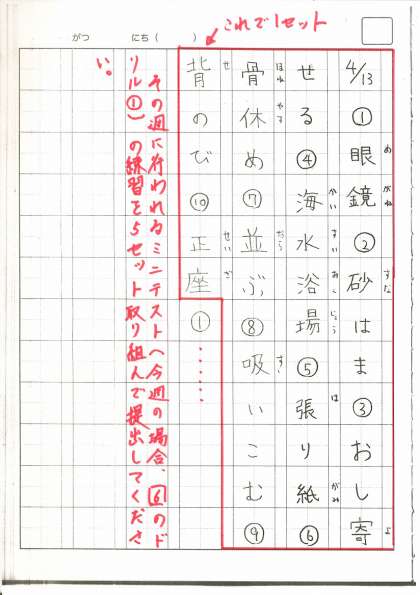 がつ　にち（　）
これで1セット
4/13①眼鏡②砂はま③おし寄
めがね　すな　よ
せる④海水浴場⑤張り紙⑥
かいすいよくじょう　は　がみ
骨休め⑦並ぶ⑧吸いこむ⑨
ほねやす　なら　す
背のび⑩正座①・・・・・・
せ　せいざ
その週に行われるミニテスト（今週の場合、6のド
リル①）の練習を5セット取り組んで提出してくださ
い。